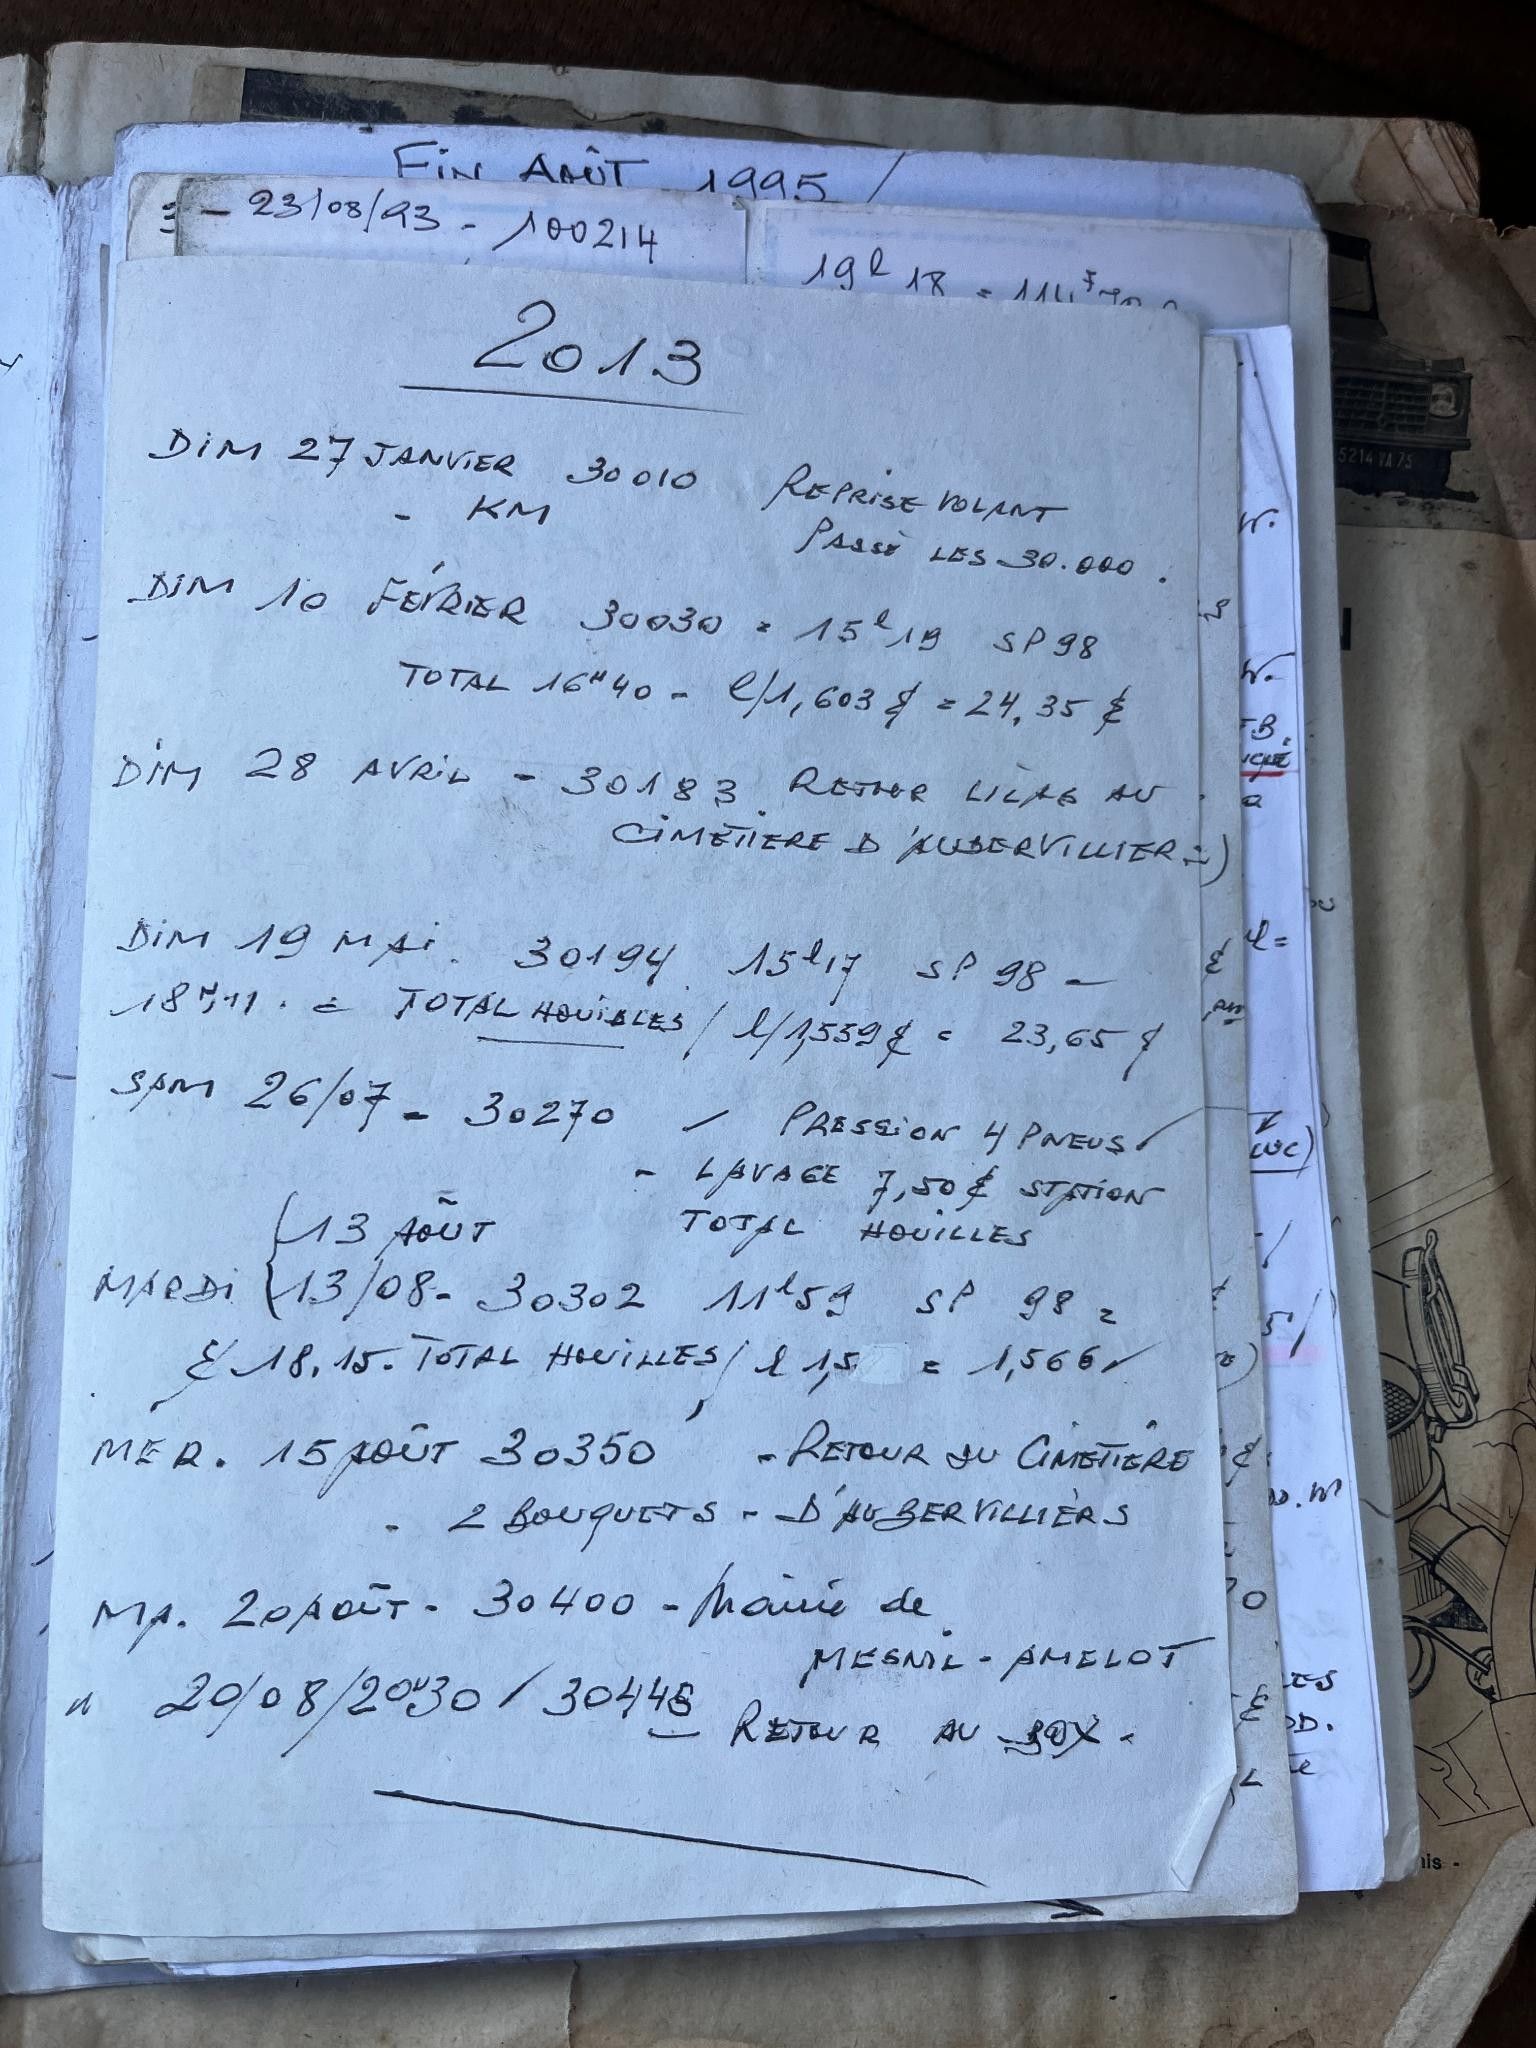 FIN AOÛT 1995 /
- 23/08/93 - 100214
19l 18 = 114F
2013
DIM 27 JANVIER 30010 REPRISE VOLANT
- KM PASSÉ LES 30.000.
DIM 10 FÉVRIER 30030 = 15l19 SP98
TOTAL 16H40 - l/1,603 € = 24,35 €
DIM 28 AVRIL - 30183. RETOUR LILAS AU
CIMETIERE D'AUBERVILLIER=)
DIM 19 MAI. 30194 15l17 SP 98 -
18H11. = TOTAL HOUILLES / l/1,559€ = 23,65 €
SAM 26/07 - 30270 / PRESSION 4 PNEUS /
- LAVAGE 7,50€ STATION
TOTAL HOUILLES
13 AOÛT
MARDI 13/08 - 30302 11l59 SP 98 =
€/18.15. TOTAL HOUILLES / l 1,5 = 1,566
MER. 15 AOÛT 30350 - RETOUR DU CIMETIÈRE
- 2 BOUQUETS - D'AUBERVILLIERS
MA. 20 AOÛT - 30400 - Mairie de
MESNIL-AMELOT
" 20/08/20H30 / 30445
RETOUR AU
5214 VA 75